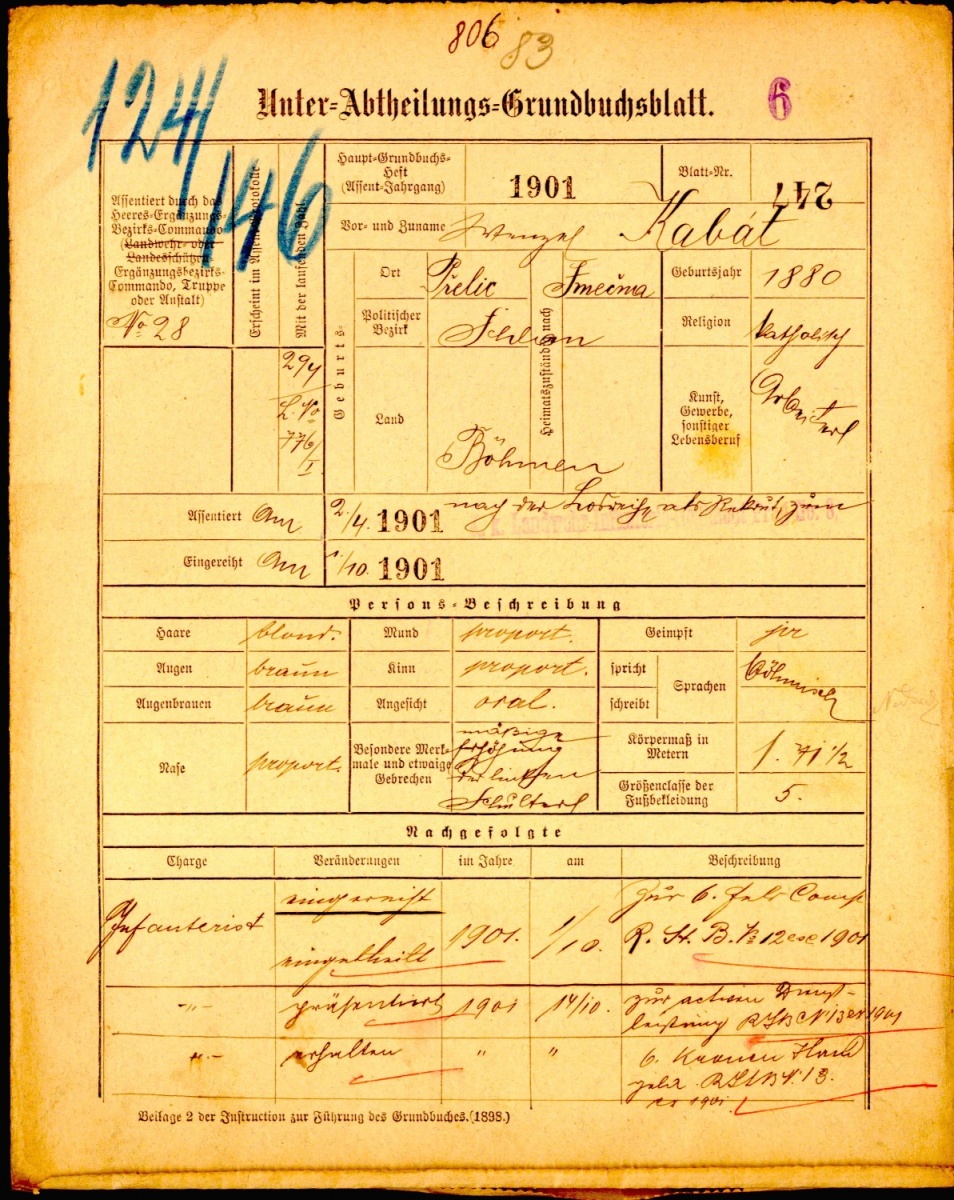 806 83
124/146
Unter-Abtheilungs-Grundbuchsblatt.
6
Assentiert durch das
Heeres-Ergänzungs-
Bezirks-Commando
(Landwehr- oder
Landesschützen-
Ergänzungsbezirks-
Commando, Truppe
oder Anstalt)
No 28
Erscheint im Assentprotokolle
Mit der laufenden Zahl
294
L. No
776/I
Haupt-Grundbuchs-
Heft
(Assent-Jahrgang)
1901
Blatt-Nr.
247
Vor- und Zuname
Wenzel Kabát
Geburts-
Ort
Přelic
Politischer
Bezirk
Schlan
Land
Böhmen
Heimatszuständig nach
Smečna
Geburtsjahr
1880
Religion
katholisch
Kunst,
Gewerbe,
sonstiger
Lebensberuf
Arbeiter
Assentiert Am 2./4. 1901 nach der Losreihe als Rekrut, zum
Eingereiht Am 1/10. 1901
Persons-Beschreibung
Haare blond. Mund proport. Geimpft ja
Augen braun Kinn proport. spricht Sprachen böhmisch
Augenbrauen braun Angesicht oval. schreibt
Nase proport.
Besondere Merk-
male und etwaige
Gebrechen
mäßige
Erhöhung
der linken
Schulter
Körpermaß in
Metern
1. 71 1/2
Größenclasse der
Fußbekleidung
5.
Nachgefolgte
Charge Veränderungen im Jahre am Beschreibung
Infanterist eingereiht 1901. 1/10. zur 6. Feld Comp
eingetheilt R. St. B. No 12 ex 1901
-"- präsentiert 1901 14/10. zur activen Dienst-
leistung RStB No 13 ex 1901
"- erhalten " " 6. Kronen Hand
geld. RStB No 13.
ex 1901
Beilage 2 der Instruction zur Führung des Grundbuches. (1898.)